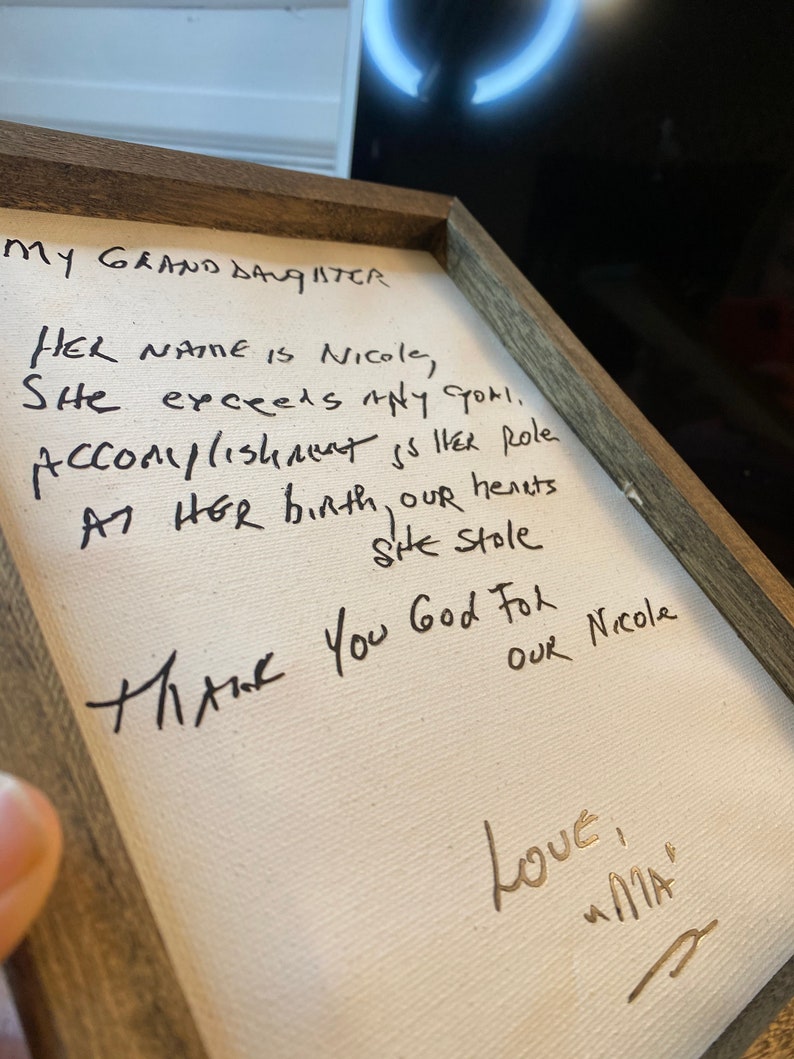 My GRANDDAUgHTER
HER NAME is Nicole,
SHe exceeds ANy goal.
Accomplishment is HER Role
AT HER birth, our hearts
SHE Stole
THANK You God For
OUR Nicole
Love,
"MA"